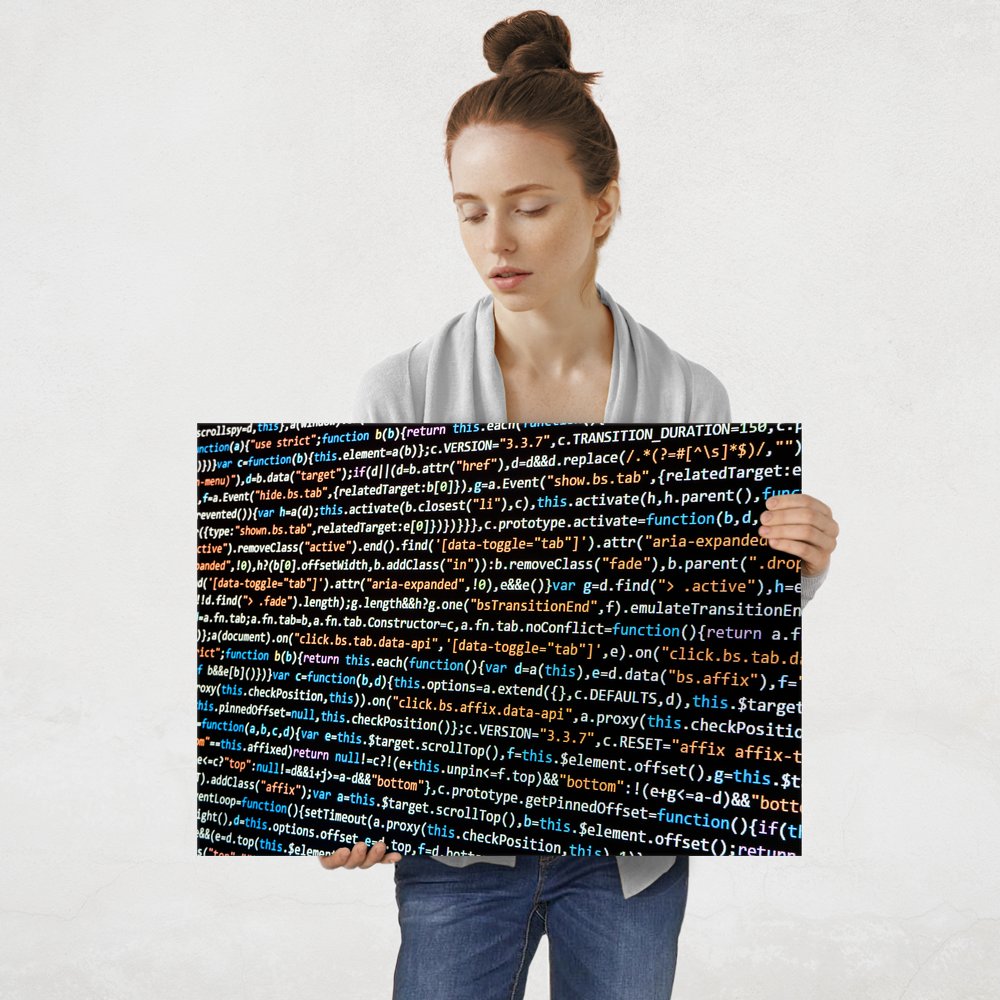 scrollspy=d,this},a(window).
"use strict";function b(b){return this.each(function(){
)})}var c=function(b){this.element=a(b)};c.VERSION="3.3.7",c.TRANSITION_DURATION=150,c.p
-menu)"),d=b.data("target");if(d||(d=b.attr("href"),d=d&&d.replace(/.*(?=#[^\s]*$)/,"")
,f=a.Event("hide.bs.tab",{relatedTarget:b[0]}),g=a.Event("show.bs.tab",{relatedTarget:e
revented()){var h=a(d);this.activate(b.closest("li"),c),this.activate(h,h.parent(),func
r({type:"shown.bs.tab",relatedTarget:e[0]})})}}},c.prototype.activate=function(b,d,
ctive").removeClass("active").end().find('[data-toggle="tab"]').attr("aria-expanded
panded",!0),h?(b[0].offsetWidth,b.addClass("in")):b.removeClass("fade"),b.parent(".drop
d('[data-toggle="tab"]').attr("aria-expanded",!0),e&&e()}var g=d.find("> .active"),h=e
!!d.find("> .fade").length);g.length&&h?g.one("bsTransitionEnd",f).emulateTransitionEn
=a.fn.tab;a.fn.tab=b,a.fn.tab.Constructor=c,a.fn.tab.noConflict=function(){return a.f
)};a(document).on("click.bs.tab.data-api",'[data-toggle="tab"]',e).on("click.bs.tab.da
rict";function b(b){return this.each(function(){var d=a(this),e=d.data("bs.affix"),f="
f b&&e[b]()})}var c=function(b,d){this.options=a.extend({},c.DEFAULTS,d),this.$target
roxy(this.checkPosition,this)).on("click.bs.affix.data-api",a.proxy(this.checkPositio
this.pinnedOffset=null,this.checkPosition()};c.VERSION="3.3.7",c.RESET="affix affix-t
=function(a,b,c,d){var e=this.$target.scrollTop(),f=this.$element.offset(),g=this.$t
om"==this.affixed)return null!=c?!(e+this.unpin<=f.top)&&"bottom":!(e+g<=a-d)&&"bott
e<=c?"top":null!=d&&i+j>=a-d&&"bottom"},c.prototype.getPinnedOffset=function(){if(th
T).addClass("affix");var a=this.$target.scrollTop(),b=this.$element.offset();return
entLoop=function(){setTimeout(a.proxy(this.checkPosition,this),1)}
ight(),d=this.options.offset,e=d.top,f=d.bottom
&&(e=d.top(this.$element